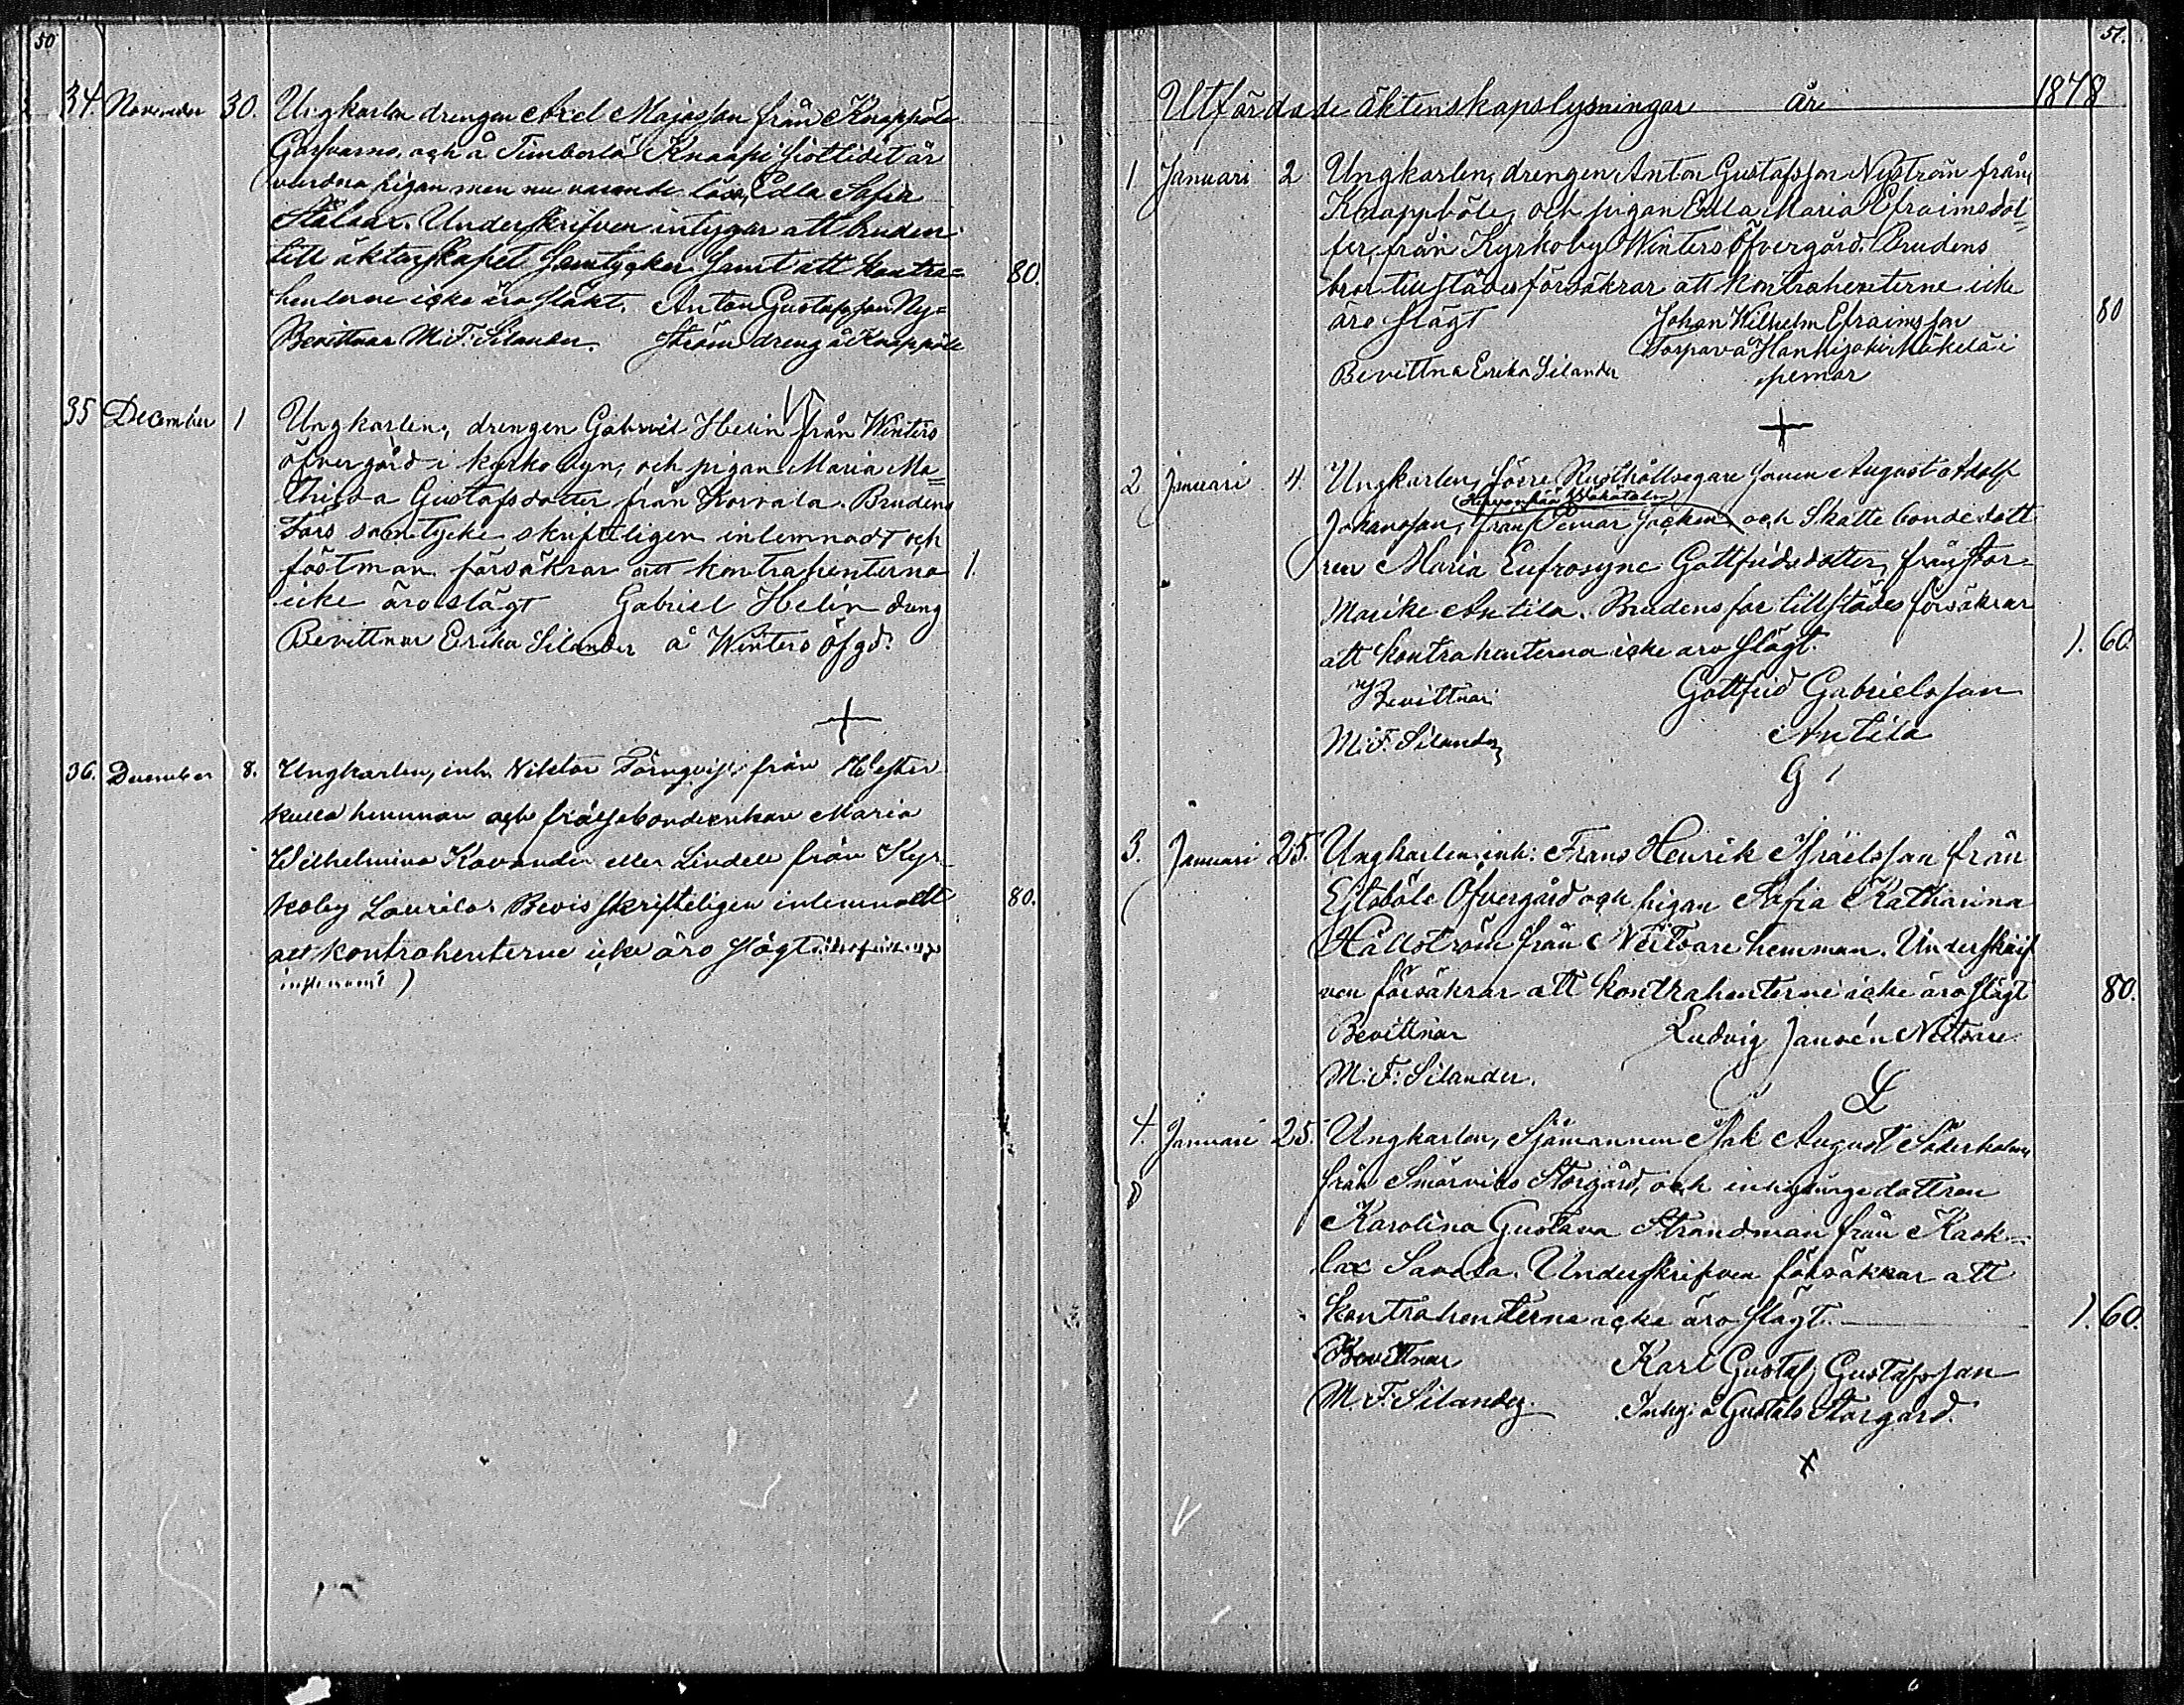 50
34. November 30. Ungkarlen drengen Axel Majasson från Knappöle
Garfvarns, och å Timberlä Knaapi
vurdna pigan men nu varande lösa, Edla Sofia
Underskrifven intygar att bruden
till äktenskapet samtycker samt att kontra=
80.
henterne icke äro släkt. Anton Gustafsson Ny=
Bevittnar M. F. Silander. ström dreng å Knappöle
35 December 1 Ungkarlen, drengen Gabriel Helin från Winters
öfvergård i kyrkobyn, och pigan Maria Ma=
thilda Gustafsdotter från Korvala. Brudens
fars samtycke skriftligen inlemnadt och
fästman försäkrar att kontrahenterna 1.
icke äro slägt Gabriel Helin dreng
Bevittnar Erika Silander å Winters Öfgd.
36. December 8. Ungkarlen, inh. Viktor Törnqvist från Wester
kulla hemman och frälsebondeenkan Maria
Wilhelmina Kavander eller Lindell från Kyr-
koby Laurila. Bevis skrifteligen inlemnadt 80.
att kontrahenterne icke äro slägt
51.
Utfärdade äktenskapslysningar år 1878
1. Januari 2 Ungkarlen, drengen Anton Gustafsson Nyström från
Knappböle, och pigan Edla Maria Efraimsdot=
ter, från Kyrkoby Winters Öfvergård. Brudens
bror tillstädes försäkrar att kontrahenterne icke
äro slägt Johan Wilhelm Efraimsson 80
Torpare å Hanhijoki Mäkelä i
Bevittna Erika Silander pemar
2 Januari 4. Ungkarlen, förre Rusthållsegare sonen August Adolf
Johansson, från Pemar socken och Skatte bondedott
ren Maria Eufrosyne Gottfridsdotter, från Stor-
Marike Antila. Brudens far tillstädes försäkrar
att kontrahenterna icke äro slägt. 1. 60.
Bevittnar Gottfrid Gabrielsson
M. F. Silander Antila
G
3. Januari 25. Ungkarlen inh: Frans Henrik Israelsson från
Ejsböle Öfvergård och pigan Sofia Katharina
Hällström från Nettvare hemman. Underskrif
ven försäkrar att kontrahenterne icke äro slägt 80.
Bevittnar Ludvig Jansén Nettvare
M: F: Silander. L
4. Januari 25. Ungkarlen, Sjömannen Isak August Söderholm
från Smörviks Storgård, och inhysingedottren
Karolina Gustava Strandman från Kask-
lax Savala. Underskrifven försäkrar att
kontrahenterne icke äro slägt. 1. 60.
Bevittnar Karl Gustaf Gustafsson
M. F. Silander. Inhys: å Gustals Storgård.
x